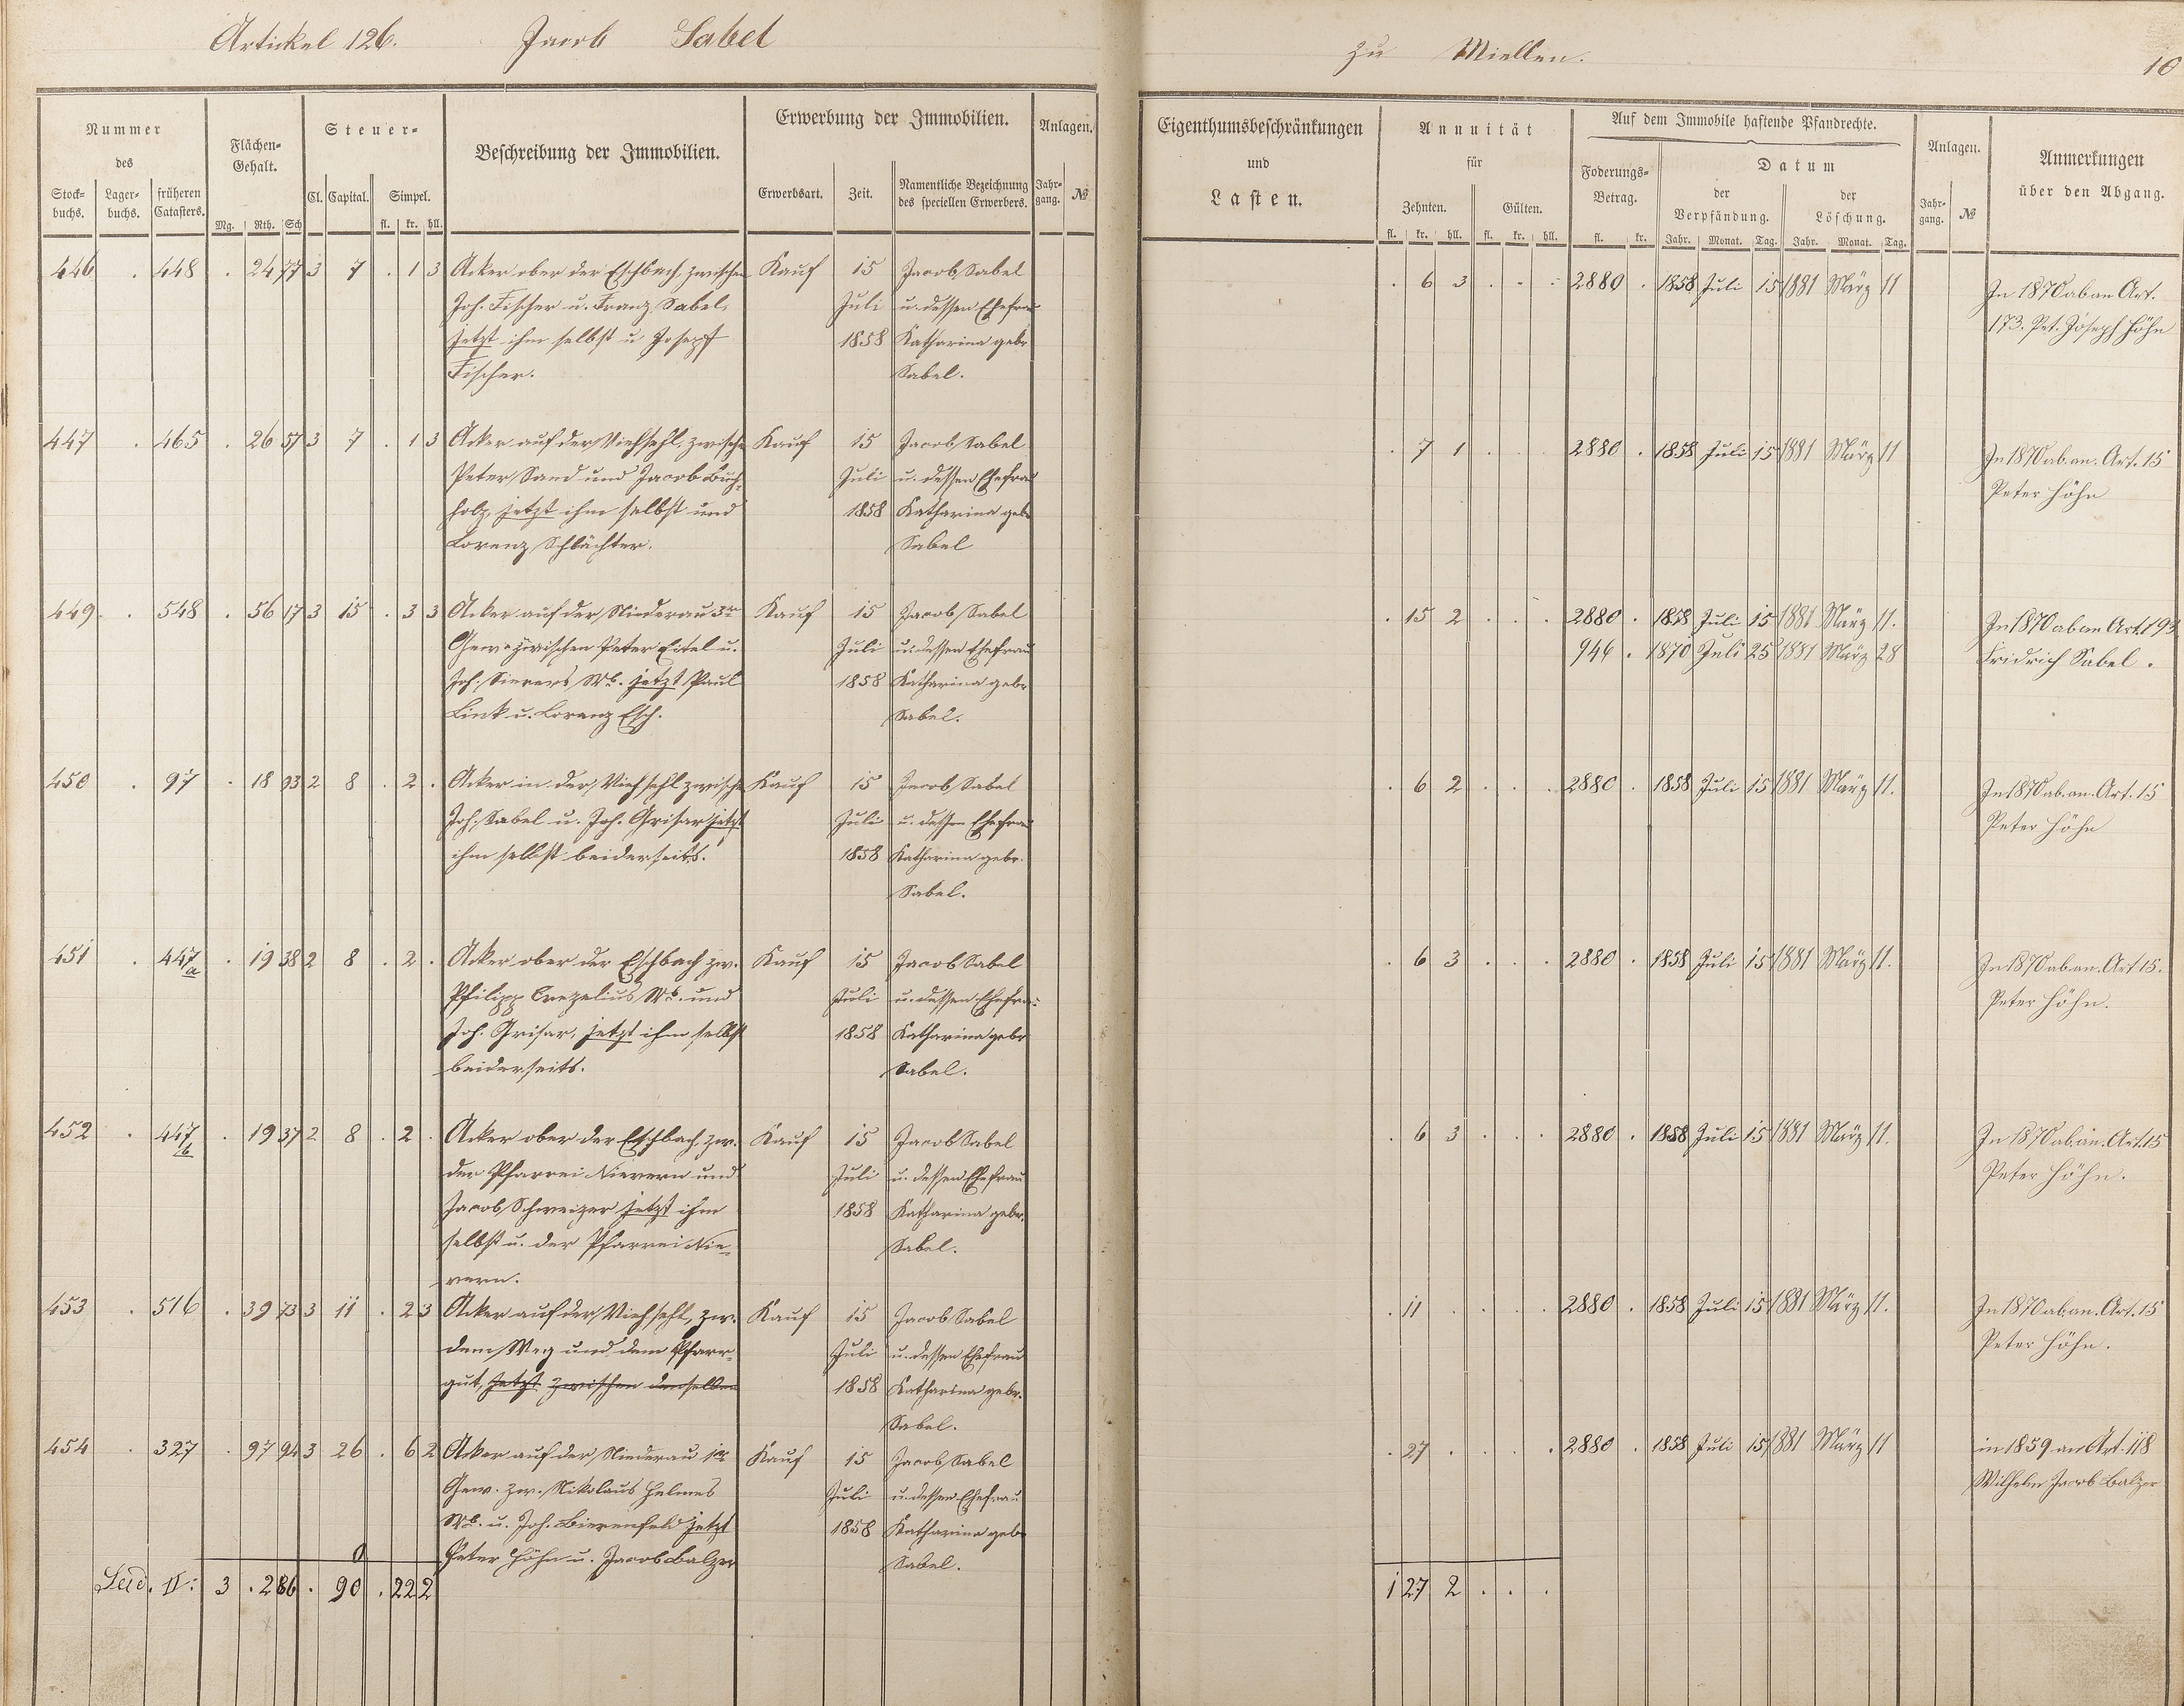 Artickel 126. Jacob Sabel
zu Miellen.
10
Nummer
des
Stock= buchs. Lager= buchs. früheren Catasters.
Flächen= Gehalt.
Mg. Rth. Sch
Steuer=
Cl. Capital. Simpel.
fl. kr. hll.
Beschreibung der Immobilien.
Erwerbung der Immobilien.
Erwerbsart. Zeit. Namentliche Bezeichnung des speciellen Erwerbers.
Anlagen.
Jahr= gang. №
Eigenthumsbeschränkungen
und
Lasten.
Annuität
für
Zehnten. Gülten.
fl. kr. hll. fl. kr. hll.
Auf dem Immobile haftende Pfandrechte.
Foderungs= Betrag.
fl. kr.
Datum
der Verpfändung. der Löschung.
Jahr. Monat. Tag. Jahr. Monat. Tag.
Anlagen.
Jahr= gang. №
Anmerkungen
über den Abgang.
446 . 448 . 24 77 3 7 . 1 3 Acker ober der Eschbach, zwischen Kauf 15 Jacob Sabel . 6 3 . . . 2880 . 1858 Juli 15 1881 März 11 In 1870 ab an Art.
Joh. Fischer u. Franz Sabel, Juli u. dessen Ehefrau 173. Pet. Joseph Höhn
jetzt ihm selbst u Josepf 1858 Katharina geb.
Fischer. Sabel.
447 . 465 . 26 57 3 7 . 1 3 Acker auf der Viehsehl, zwische Kauf 15 Jacob Sabel . 7 1 . . . 2880 . 1858 Juli 15 1881 März 11 In 1870 ab an. Art. 15
Peter Sand und Jacob Buch= Juli u. dessen Ehefrau Peter Höhn
holz, jetzt ihm selbst und 1858 Katharina geb.
Lorenz Schlächter. Sabel
449 . 548 . 56 17 3 15 . 3 3 Acker auf der Niederau 3te Kauf 15 Jacob Sabel . 15 2 . . . 2880 . 1858 Juli 15 1881 März 11. In 1870 ab an Art. 193
Gew. zwischen Peter Eitel u. Juli u. dessen Ehefrau 946 . 1870 Juli 25 1881 März 28 Fridrich Sabel.
Joh. Wb. jetzt Paul 1858 Katharina geb.
Link u. Lorenz Esch. Sabel.
450 . 97 . 18 93 2 8 . 2 . Acker in der Viehsehl zwische Kauf 15 Jacob Sabel . 6 2 . . . 2880 . 1858 Juli 15 1881 März 11. In 1870 ab an. Art. 15
Joh. Sabel u. Joh. Grisar jetzt Juli u. dessen Ehefrau Peter Höhn
ihm selbst beiderseits. 1858 Katharina geb.
Sabel.
451 . 447/a . 19 38 2 8 . 2 . Acker ober der Eschbach zw. Kauf 15 Jacob Sabel . 6 3 . . . 2880 . 1858 Juli 15 1881 März 11. In 1870 ab an. Art 15.
Philipp Crezelius Wb. und Juli u. dessen Ehefrau Peter Höhn.
Joh. Grisar, jetzt ihm selbst 1858 Katharina geb.
beiderseits. Sabel.
452 . 447/b . 19 37 2 8 . 2 . Acker ober der Eschbach, zw. Kauf 15 Jacob Sabel . 6 3 . . . 2880 . 1858 Juli 15 1881 März 11. In 1870 ab an. Art. 15
der Pfarrei Nievern und Juli u. dessen Ehefrau Peter Höhn.
Jacob Schweizer jetzt ihm 1858 Katharina geb.
selbst u. der Pfarrei Nie= Sabel.
vern.
453 . 516 . 39 73 3 11 . 2 3 Acker auf der Viehsehl, zw. Kauf 15 Jacob Sabel . 11 . . . . 2880 . 1858 Juli 15 1881 März 11. In 1870 ab an. Art. 15
dem Weg und dem Pfarr= Juli u. dessen Ehefrau Peter Höhn.
gut, jetzt zwischen denselben 1858 Katharina geb.
Sabel.
454 . 327 . 97 94 3 26 . 6 2 Acker auf der Niederau 1te Kauf 15 Jacob Sabel . 27 . . . . 2880 . 1858 Juli 15 1881 März 11 in 1859 an Art. 118
Gew. zw. Nikolaus Helmes Juli u. dessen Ehefrau Wilhelm Jacob Balzer
Wb. u. Joh. Bierenfeld jetzt 1858 Katharina geb.
Peter Höhn u. Jacob Balzer Sabel.
II: 3 . 2 86 . 90 . 22 2 1 27 2 . . .